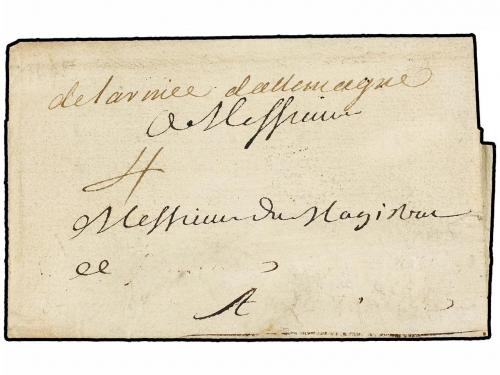 de l'armée d'allemagne
A Messieurs
4
Messieurs du Magistrat
A